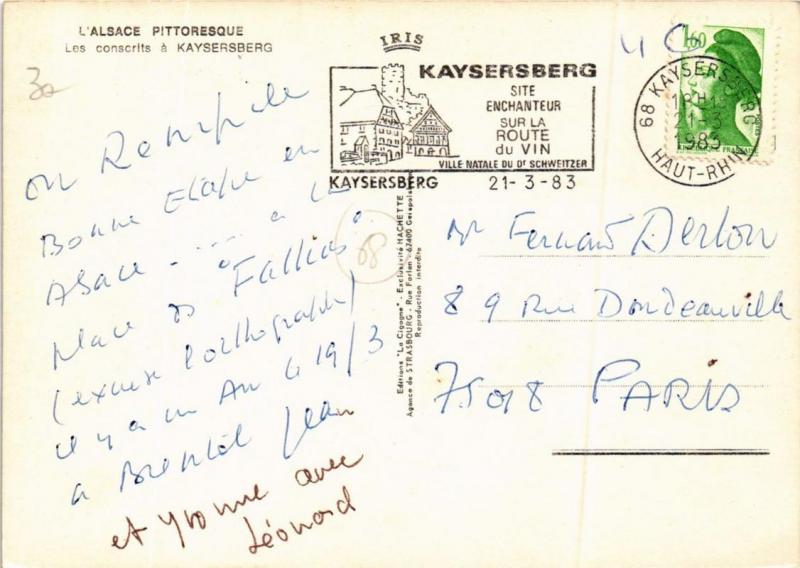 L'ALSACE PITTORESQUE
Les conscrits à KAYSERSBERG
IRIS
KAYSERSBERG
SITE
ENCHANTEUR
SUR LA
ROUTE
du VIN
VILLE NATALE DU Dr SCHWEITZER
KAYSERSBERG 21-3-83
68 KAYSERSBERG
18H
21-3
1983
HAUT-RHIN
1,60
on
Bonne Etape en
Alsace - ... a la
place
(excuse l'orthographe)
il y a un An le 19/3
a Jean
et Yvonne avec
Léonard
68
Editions "La Cigogne" - Exclusivité HACHETTE
Agence de STRASBOURG - Rue Forlen - 67400 Geispols
Reproduction interdite
Mr Fernand Derlon
89 Rue Dondeauville
75018 PARIS